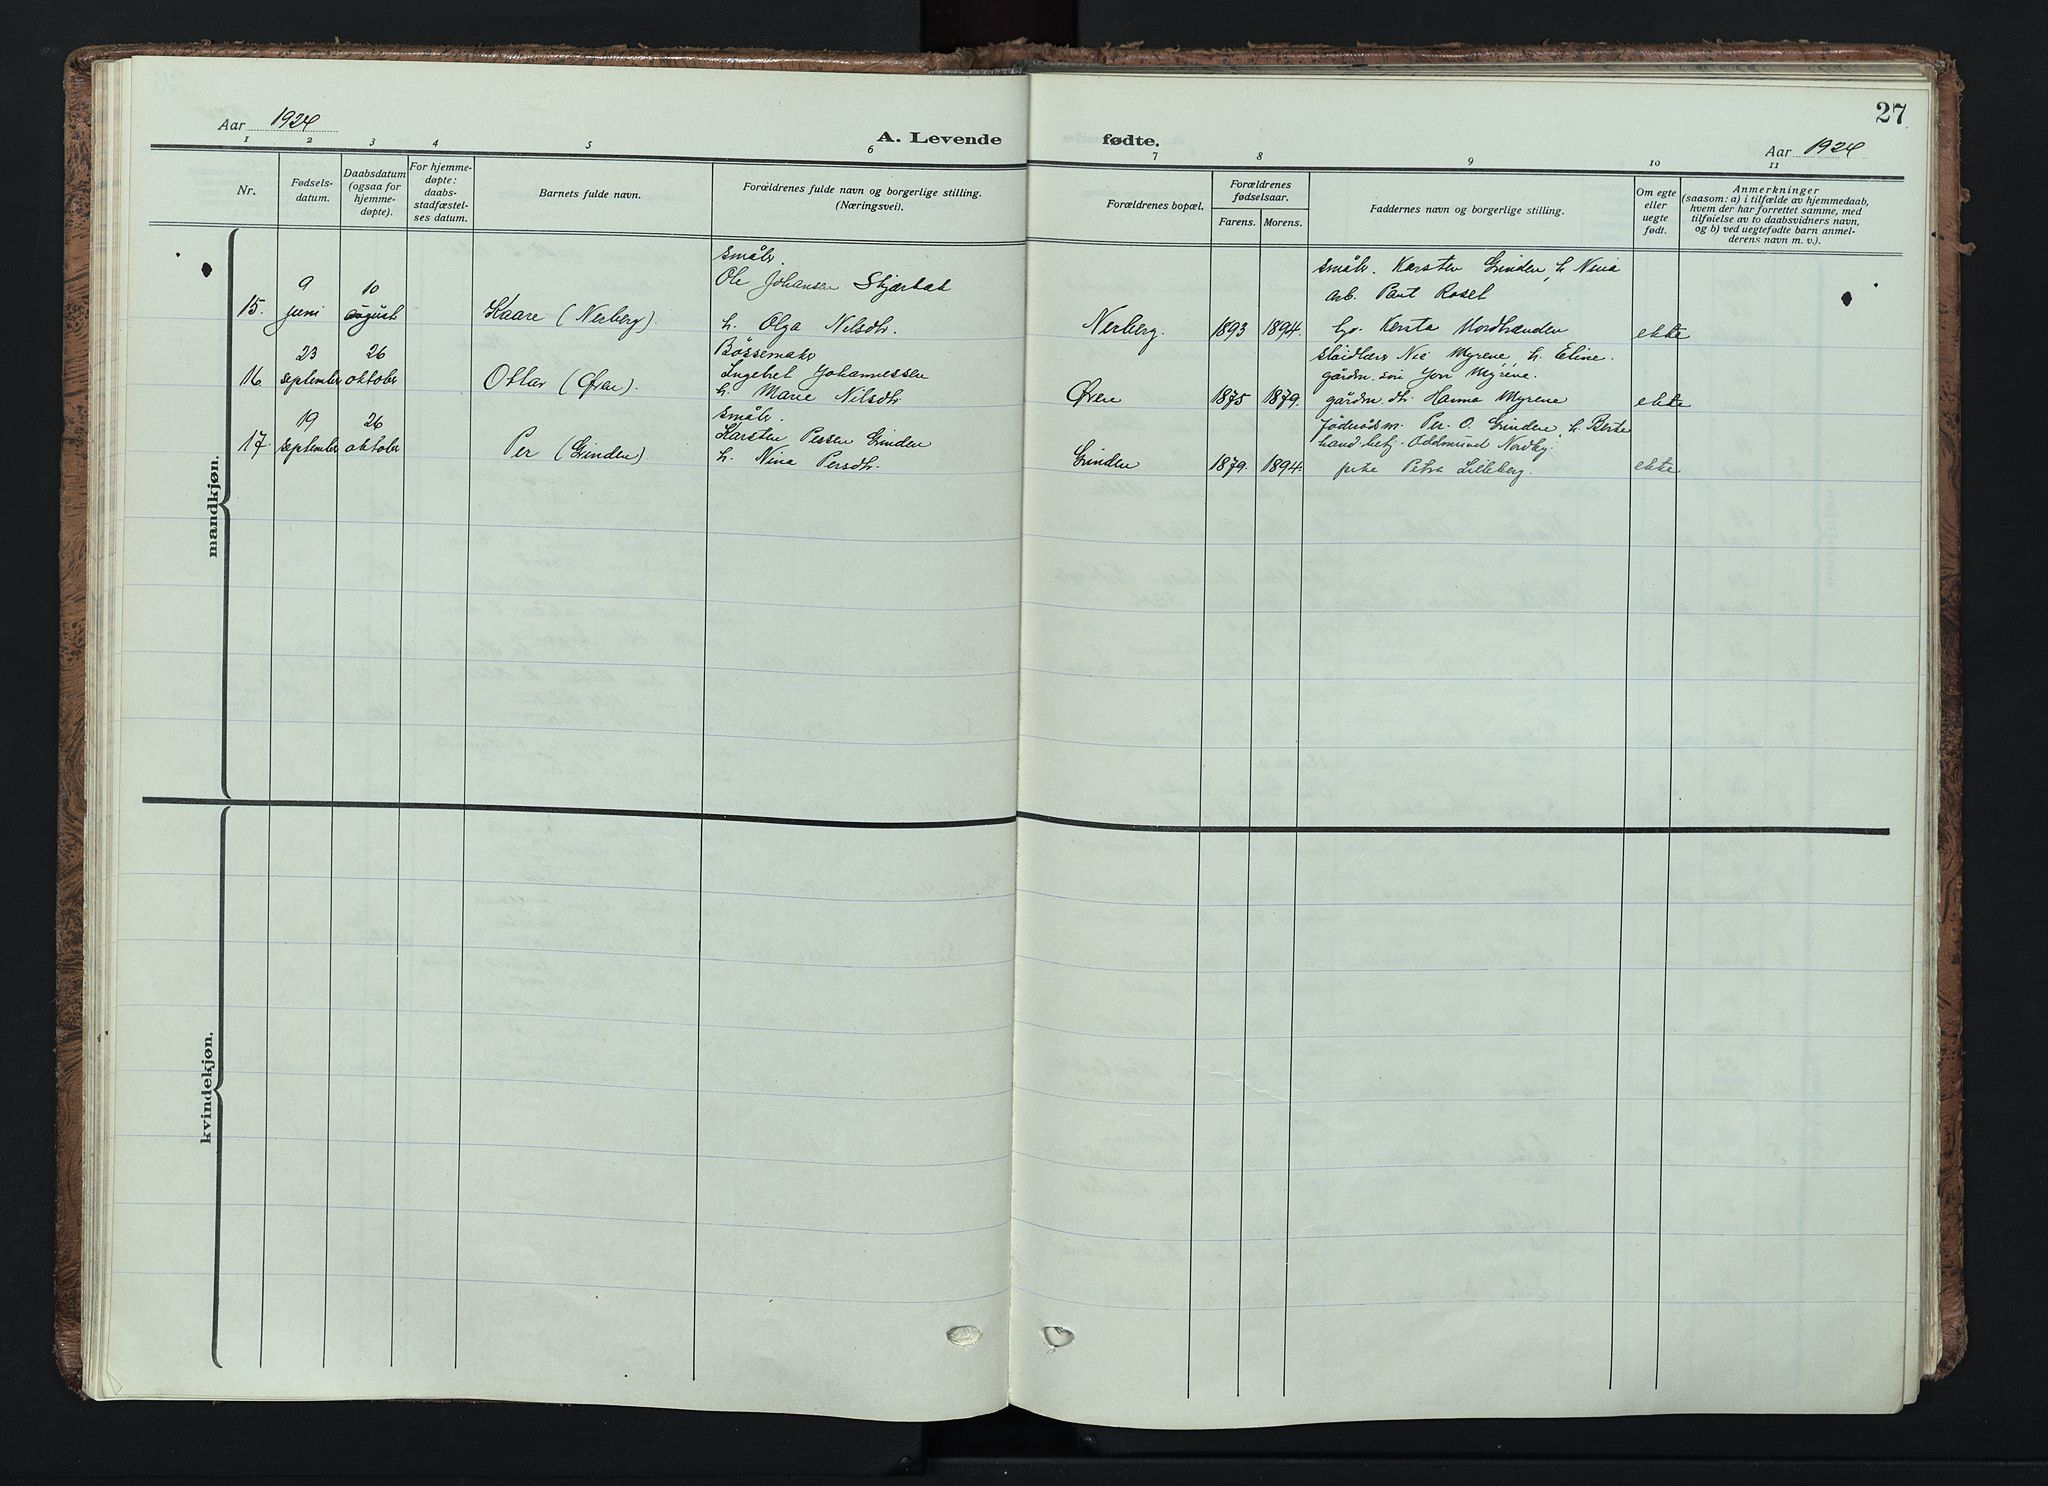 27
Aar 1924
A. Levende fødte.
Aar 1924
1 2 3 4 5 6 7 8 9 10 11
Nr.
Fødsels-
datum.
Daabsdatum
(ogsaa for
hjemme-
døpte).
For hjemme-
døpte:
daabs-
stadfæstel-
ses datum.
Barnets fulde navn.
Forældrenes fulde navn og borgerlige stilling.
(Næringsvei).
Forældrenes bopæl.
Forældrenes
fødselsaar.
Farens. Morens.
Faddernes navn og borgerlige stilling.
Om egte
eller
uegte
født.
Anmerkninger
(saasom: a) i tilfælde av hjemmedaab,
hvem der har forrettet samme, med
tilføielse av to daabsvidners navn,
og b) ved uegtefødte barn anmel-
derens navn m. v.).
mandkjøn.
småbr.
9 10 Ole Johansen Skjærbæk småbr. Karsten Grinden, h. Nina
arb. Paul Roset
15. juni august Kaare (Nerberg). h. Olga Nilsdtr. Nerberg. 1893 1894. Kersta ekte
23 26 Bössemaker sløidlærer Myrene, h. Eline.
16 september oktober Ottar (Øvre). Ingebret Johannessen gårdm. søn Jon Myrene.
h. Marie Nilsdtr. Øvre 1875 1879. gårdm. dtr. Hanna Myrene ekte
19 26 småbr. Per O. Grinden h. Berte
17. september oktober Per (Grinden) Karsten Persen Grinden handelsbetj. Oddmund Nordby.
h. Nina Persdtr. Grinden 1879. 1894. pike Petra Lilleberg. ekte
kvindekjøn.